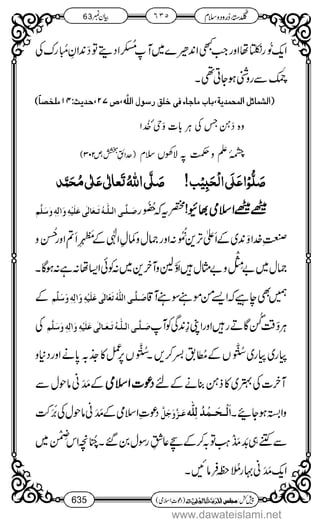 بیان نمبر 63
٦٣٥
گلدستۂ درود و سلام
ایک نور نکلتا تھا اور جب کبھی اندھیرے میں آپ مسکرا دیتے تو دندانِ مبارک کی
چمک سے روشنی ہو جاتی تھی۔
(الشمائل المحمدیة، باب ماجاء فی خلق رسول اللہ، ص ۲۷، حدیث: ۱۴ ملخصاً)
وہ دہن جس کی ہر بات وحیِ خدا
چشمۂ علم و حکمت پہ لاکھوں سلام (حدائقِ بخشش، ص۳۰۲)
صَلُّوْا عَلَی الْحَبِیْب! صَلَّی اللہُ تَعَالٰی عَلٰی مُحَمَّد
میٹھے میٹھے اسلامی بھائیو! مختصر یہ کہ حضور صَلَّی اللہُ تَعَالٰی عَلَیْہِ وَاٰلِہٖ وَسَلَّم
صنعتِ خداوندی کے اعلیٰ ترین نمونہ اور جمال و کمالِ الٰہی کے مظہرِ اتم اور حسن و
جمال میں بے مثل و بے مثال ہیں اولین و آخرین میں کوئی نہ ایسا تھا نہ ہے نہ ہوگا۔
ہمیں بھی چاہیے کہ ایسے من موہنے سوہنے آقا صَلَّی اللہُ تَعَالٰی عَلَیْہِ وَاٰلِہٖ وَسَلَّم کے
ہر وقت گُن گاتے رہیں اور اپنی زندگی کو آپ صَلَّی اللہُ تَعَالٰی عَلَیْہِ وَاٰلِہٖ وَسَلَّم کی
پیاری پیاری سنتوں کے مطابق بسر کریں۔ سنتوں پر عمل کا جذبہ پانے اور دنیا و
آخرت کی بہتری کا ذہن بنانے کے لئے دعوتِ اسلامی کے مدنی ماحول سے
وابستہ ہو جائیے۔ اَلْحَمْدُ لِلّٰہ عَزَّوَجَلَّ دعوتِ اسلامی کے مدنی ماحول کی برکت
سے کتنے ہی بدمذہب توبہ کر کے سچے عاشقِ رسول بن گئے۔ چنانچہ اس ضمن میں
ایک مدنی بہار ملاحظہ فرمائیں۔
635
www.dawateislami.net